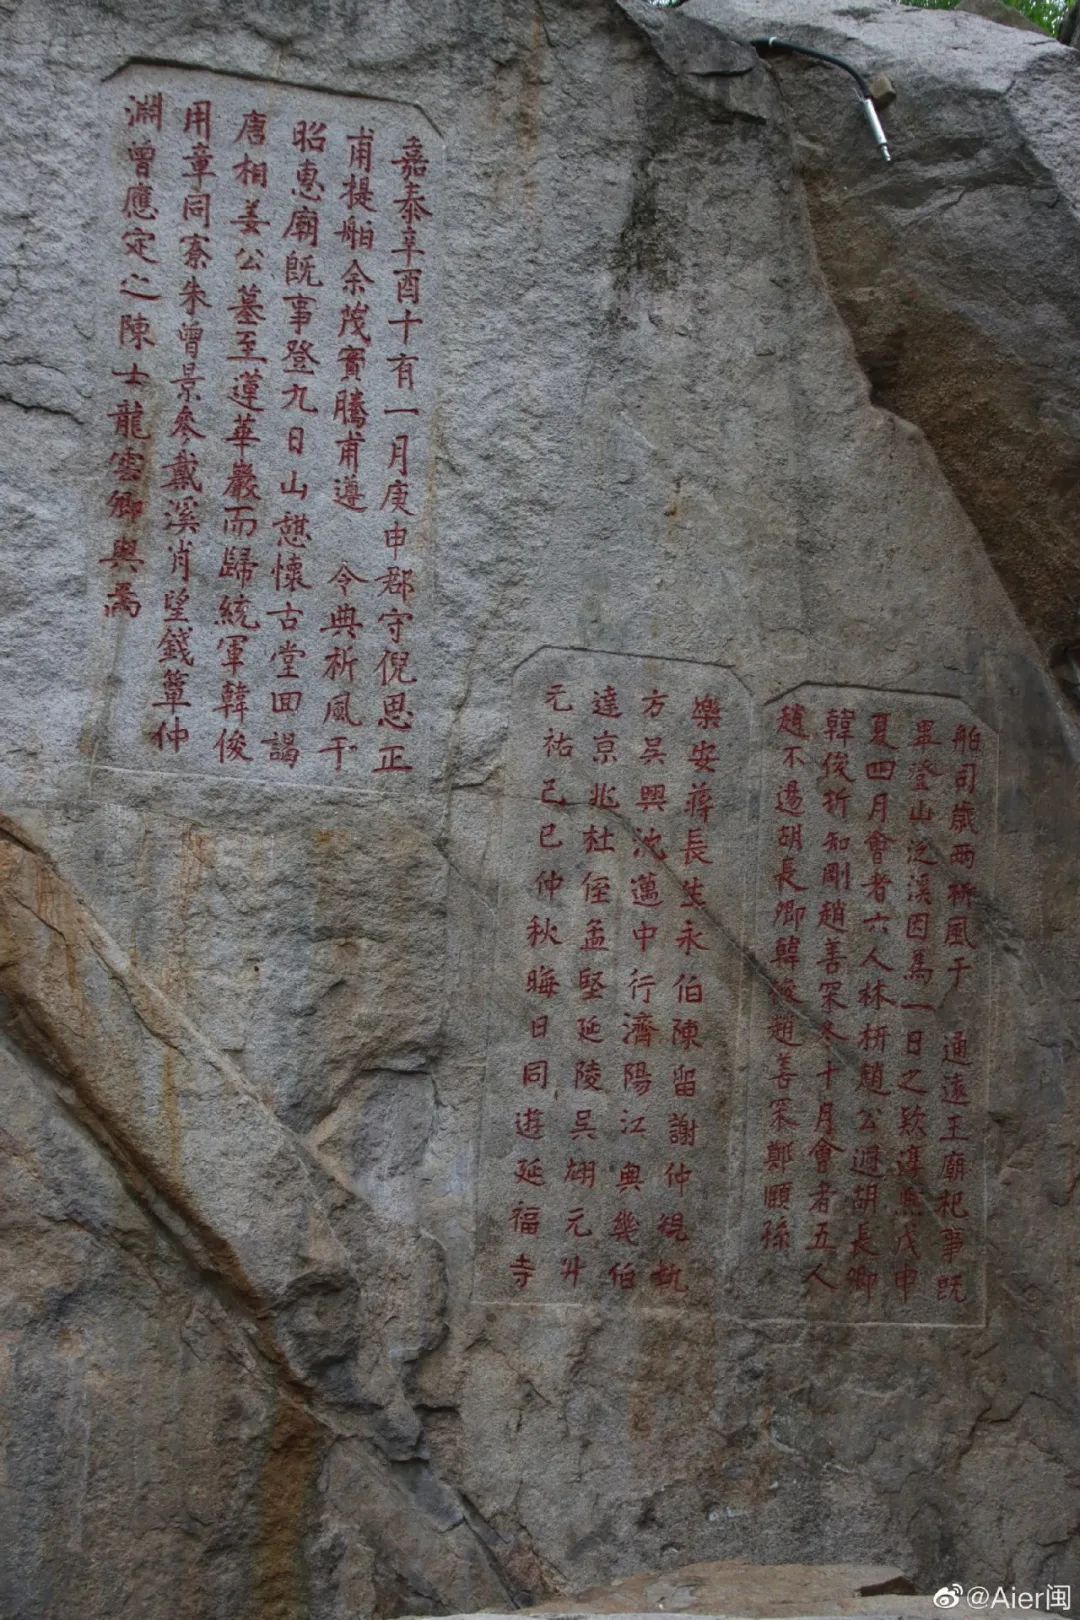 嘉泰辛酉十有一月庚申郡守倪思正
甫提舶余茂實騰甫遵 令典祈風于
昭惠廟既事登九日山憇懷古堂回謁
唐相姜公墓至蓮華巖而歸統軍韓俊
用章同寮朱曾景參戴溪肖望錢簟仲
淵曾應定之陳士龍雲卿與焉
舶司歲兩祈風于 通遠王廟祀事既
畢登山泛溪因為一日之欵淳熙戊申
夏四月會者六人林枅趙公迥胡長卿
韓俊折知剛趙善寀冬十月會者五人
趙不逷胡長卿韓俊趙善寀鄭頤孫
樂安蔣長生永伯陳留謝仲規執
方吳興沈邁中行濟陽江與幾伯
達京兆杜侄孟堅延陵吳翃元升
元祐己巳仲秋晦日同遊延福寺
@Aier闽